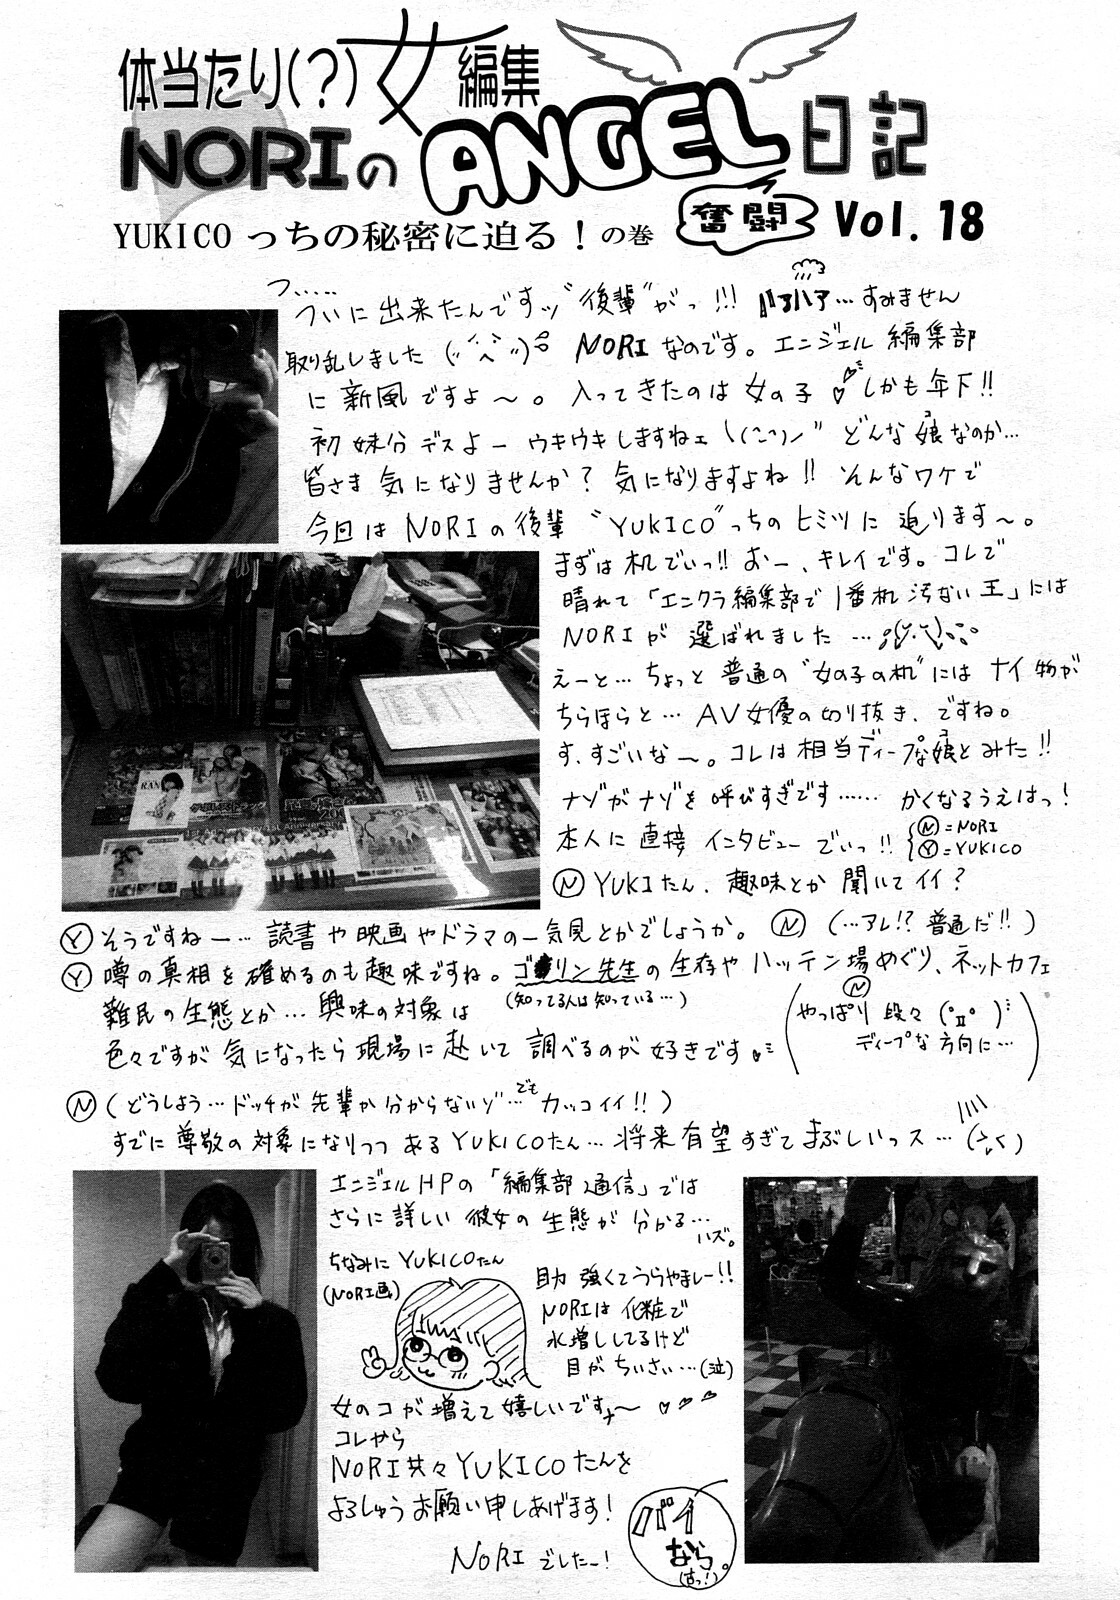 体当たり(?)女編集
NORIのANGEL日記
奮闘
Vol. 18
YUKICO っちの秘密に迫る!の巻
つ……
ついに出来たんですッ"後輩"がっ!!! ハァハァ…すみません
取り乱しました NORIなのです。エンジェル編集部
に新風ですよ〜。入ってきたのは女の子♡しかも年下!!
初妹分デスよー ウキウキしますねェ どんな娘なのか…
コ
皆さま気になりませんか?気になりますよね!!そんなワケで
今回はNORIの後輩"YUKICO"っちのヒミツに迫ります〜。
まずは机でいっ!!おー、キレイです。コレで
晴れて「エンクラ編集部で1番机汚ない王」には
NORIが選ばれました…
えーと…ちょっと普通の"女の子の机"にはナイ物が
ちらほらと…AV女優の切り抜き、ですね。
す、すごいな〜。コレは相当ディープな娘とみた!!
コ
ナゾがナゾを呼びすぎです……かくなるうえはっ!
本人に直接インタビューでいっ!!
Ⓝ=NORI
Ⓨ=YUKICO
RAN
Ⓝ YUKIたん、趣味とか聞いてイイ?
Ⓨ そうですねー…読書や映画やドラマの一気見とかでしょうか。 Ⓝ(…アレ!?普通だ!!)
Ⓨ 噂の真相を確めるのも趣味ですね。ゴ■リン先生の生存やハッテン場めぐり、ネットカフェ
(知ってる人は知っている…)
難民の生態とか…興味の対象は
色々ですが気になったら現場に赴いて調べるのが好きです♡
Ⓝ
(やっぱり段々(°ㅍ°)
ディープな方向に…)
Ⓝ(どうしよう…ドッチが先輩か分からないゾ…でもカッコイイ!!)
すでに尊敬の対象になりつつあるYUKICOたん…将来有望すぎてまぶしいっス…
エンジェルHPの「編集部通信」では
さらに詳しい彼女の生態が分かる…
ハズ。
ちなみにYUKICOたん
(NORI画)
目力強くてうらやましー!!
NORIは化粧で
水増ししてるけど
目がちいさい…(泣)
女のコが増えて嬉しいですナ〜♡♡♡
コレから
NORI共々YUKICOたんを
よろしゅうお願い申しあげます!
NORIでしたー!
バイ
なら。
(古っ!)